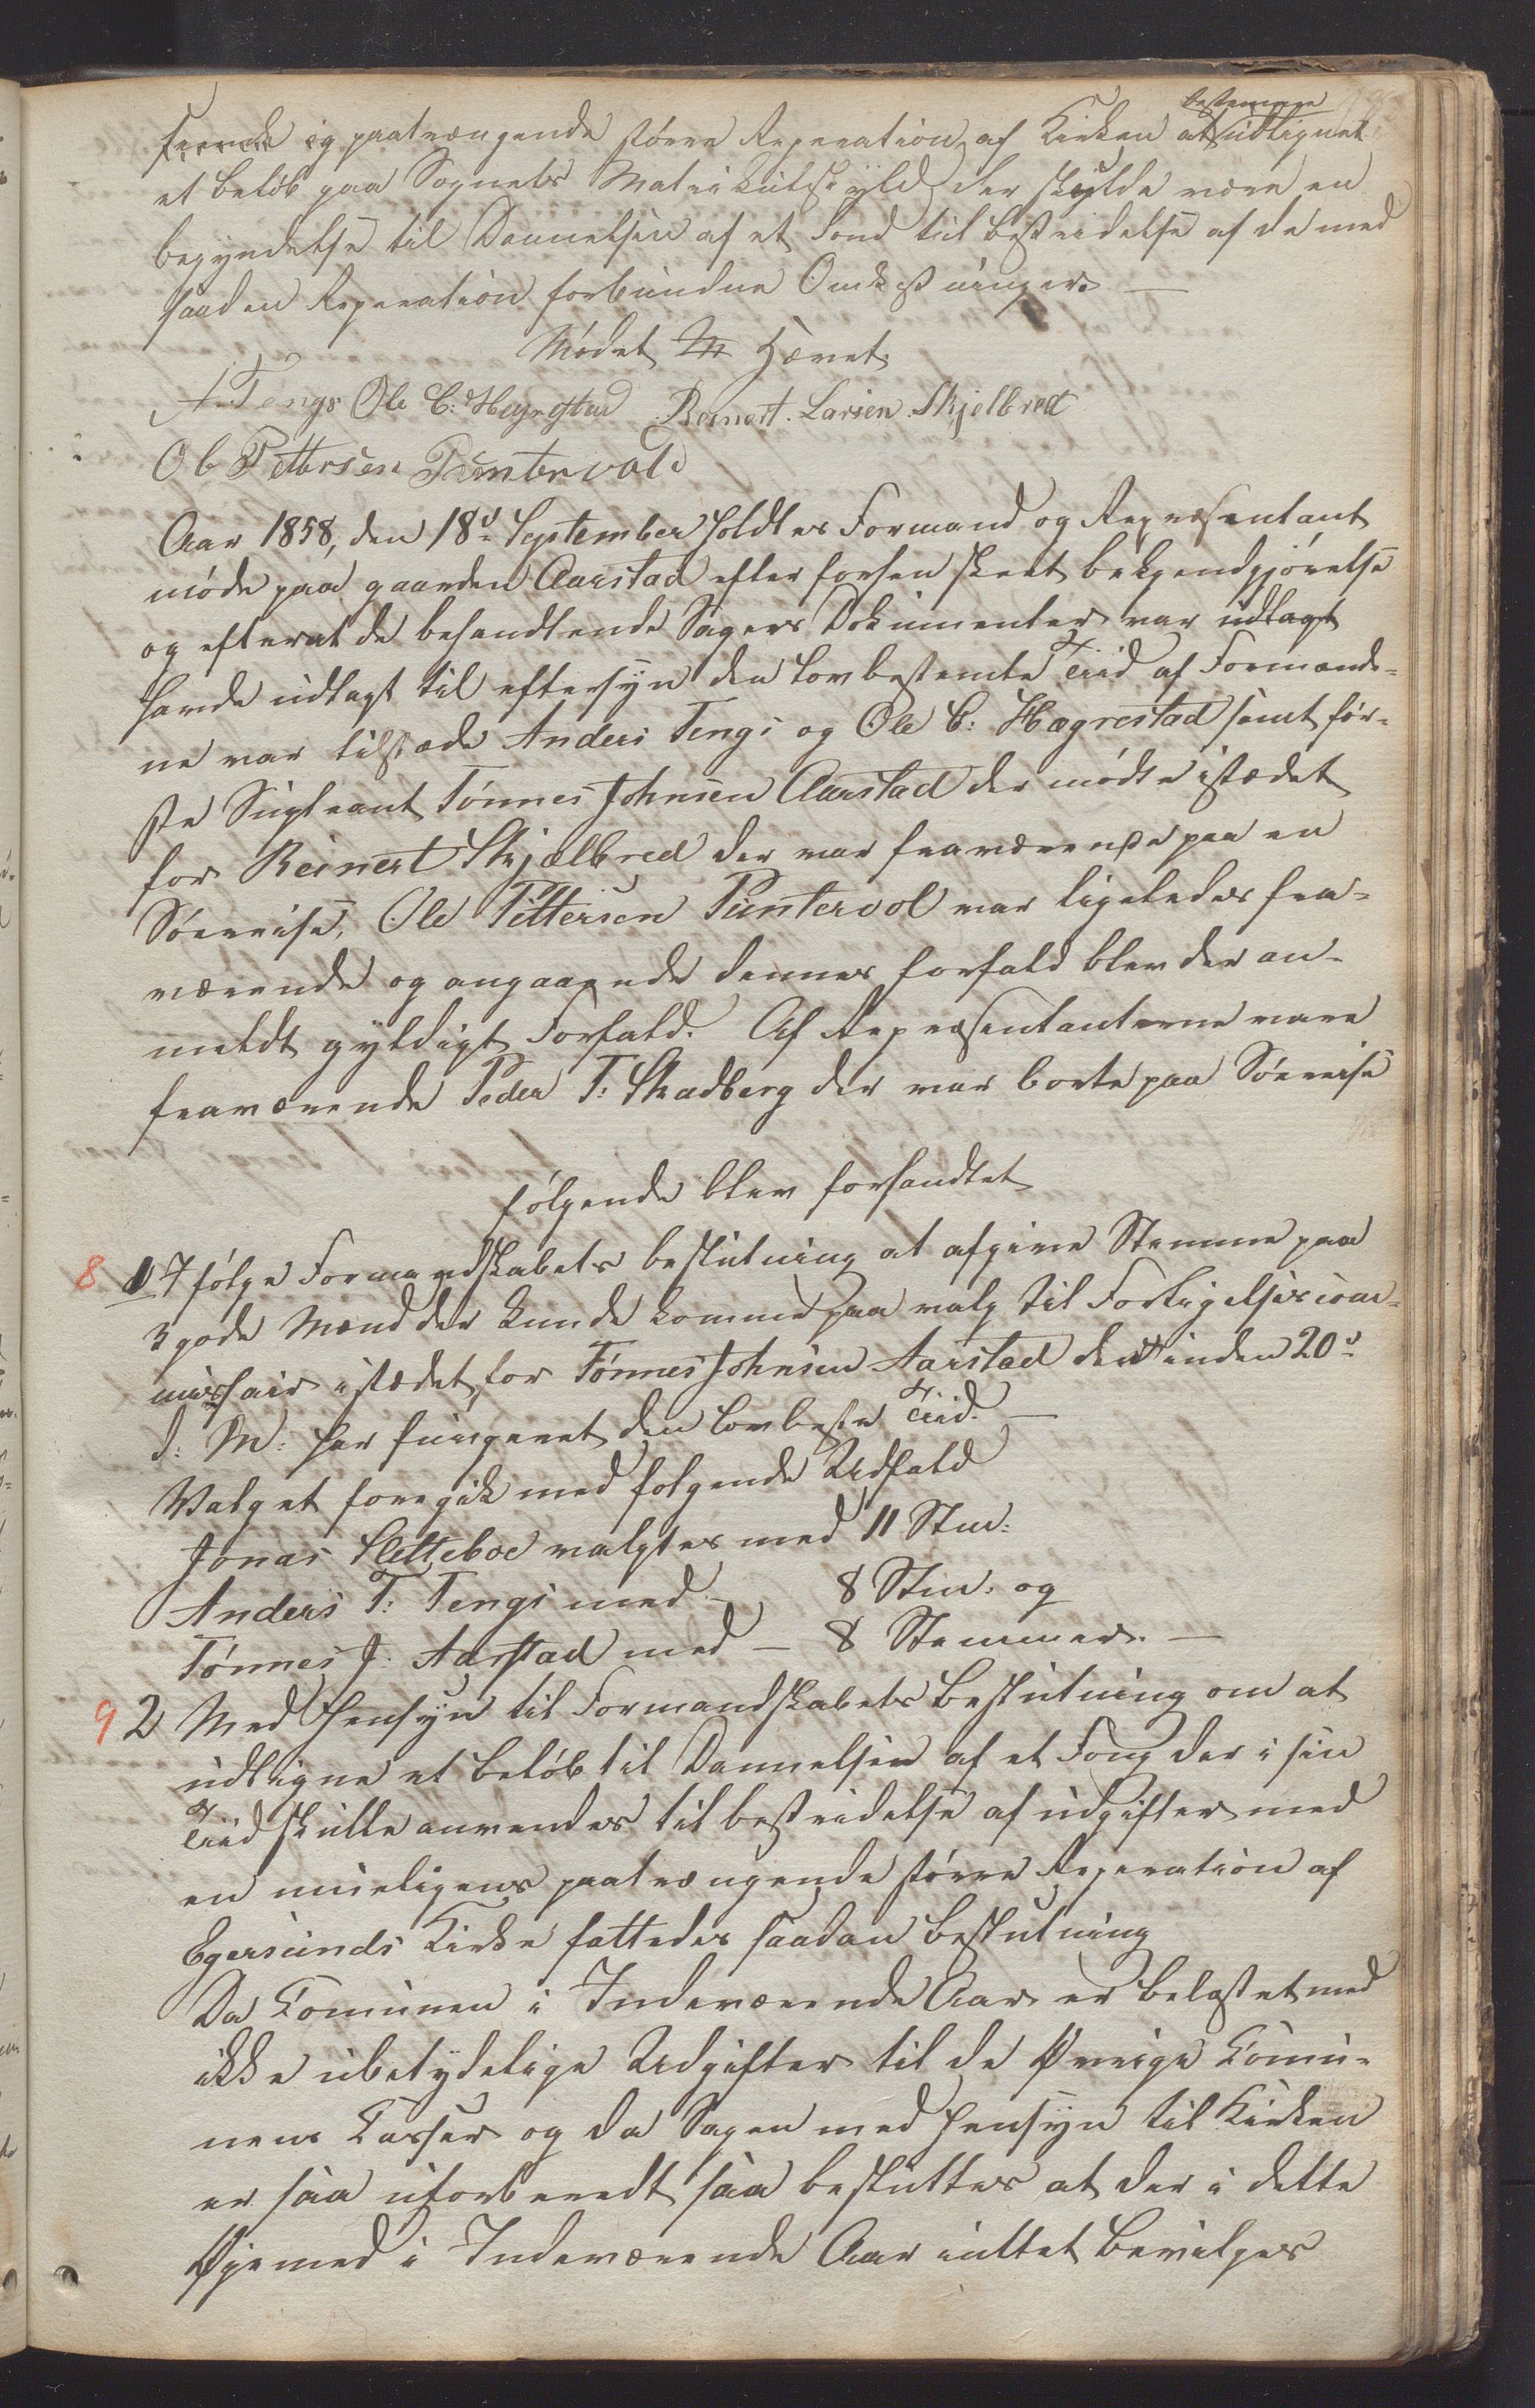 bestemme
og paatrængende større Reperation af Kirken at udlignet
et beløb paa Sognets Matrikulskyld der skulde være en
begyndelse til Dannelsen af et Fond til bestridelse af de med
saadan Reperation forbundne Omkostninger. —
Mødet Hævet
A. Tengs Ole C: Hægrestad Reinert Larsen Skjelbred
Ole Pettersen Puntervold
Aar 1858, den 18de September holdtes Formand og Repræsentant
møde paa gaarden Aarstad efter forhen skeet bekjendgjørelse
og efterat de behandlende Sagers Dokumenter var udlagt
havde udlagt til eftersyn den lovbestemte Tiid af Formænde-
ne var tilstæde Anders Tengs og Ole C: Hægrestad samt før-
ste Supleant Tønnes Johnsen Aarstad der mødte istædet
for Reinert Skjælbred der var fraværende paa en
Søereise, Ole Pettersen Puntervol var ligeledes fra-
værende og angaaende dennes forfald blev der an-
meldt gyldigt Forfald. Af Repræsentanterne vare
fraværende Peder T: Skadberg der var borte paa Søereise
følgende blev forhandlet
8 1 Ifølge Formandskabets beslutning at afgive Stemme paa
3 gode Mænd der kunde komme paa valg til Forligelsescom-
missair istædet for Tønnes Johnsen Aarstad der inden 20de
d: M: har fungeret den lovbeste Tiid. —
Valget foregik med følgende Udfald
Jonas Sletteboe valgtes med 11 Stm:
Anders T: Tengs med — 8 Stm. og
Tønnes J: Aarstad med — 8 Stemmer. —
9 2 Med Hensyn til Formandskabets Beslutning om at
udligne et beløb til Dannelsen af et Fong der i sin
Tiid skulle anvendes til bestridelse af udgifter med
en mueligens paatrængende større Reperation af
Egersunds Kirke fattedes saadan Beslutning
Da Comunen i Indeværende Aar er belastet med
ikke ubetydelige Udgifter til de Øvrige Comu-
nens Casser og da Sagen med Hensyn til Kirken
er saa uforberedt saa besluttes at der i dette
Øiemed i Indeværende Aar intet bevilges